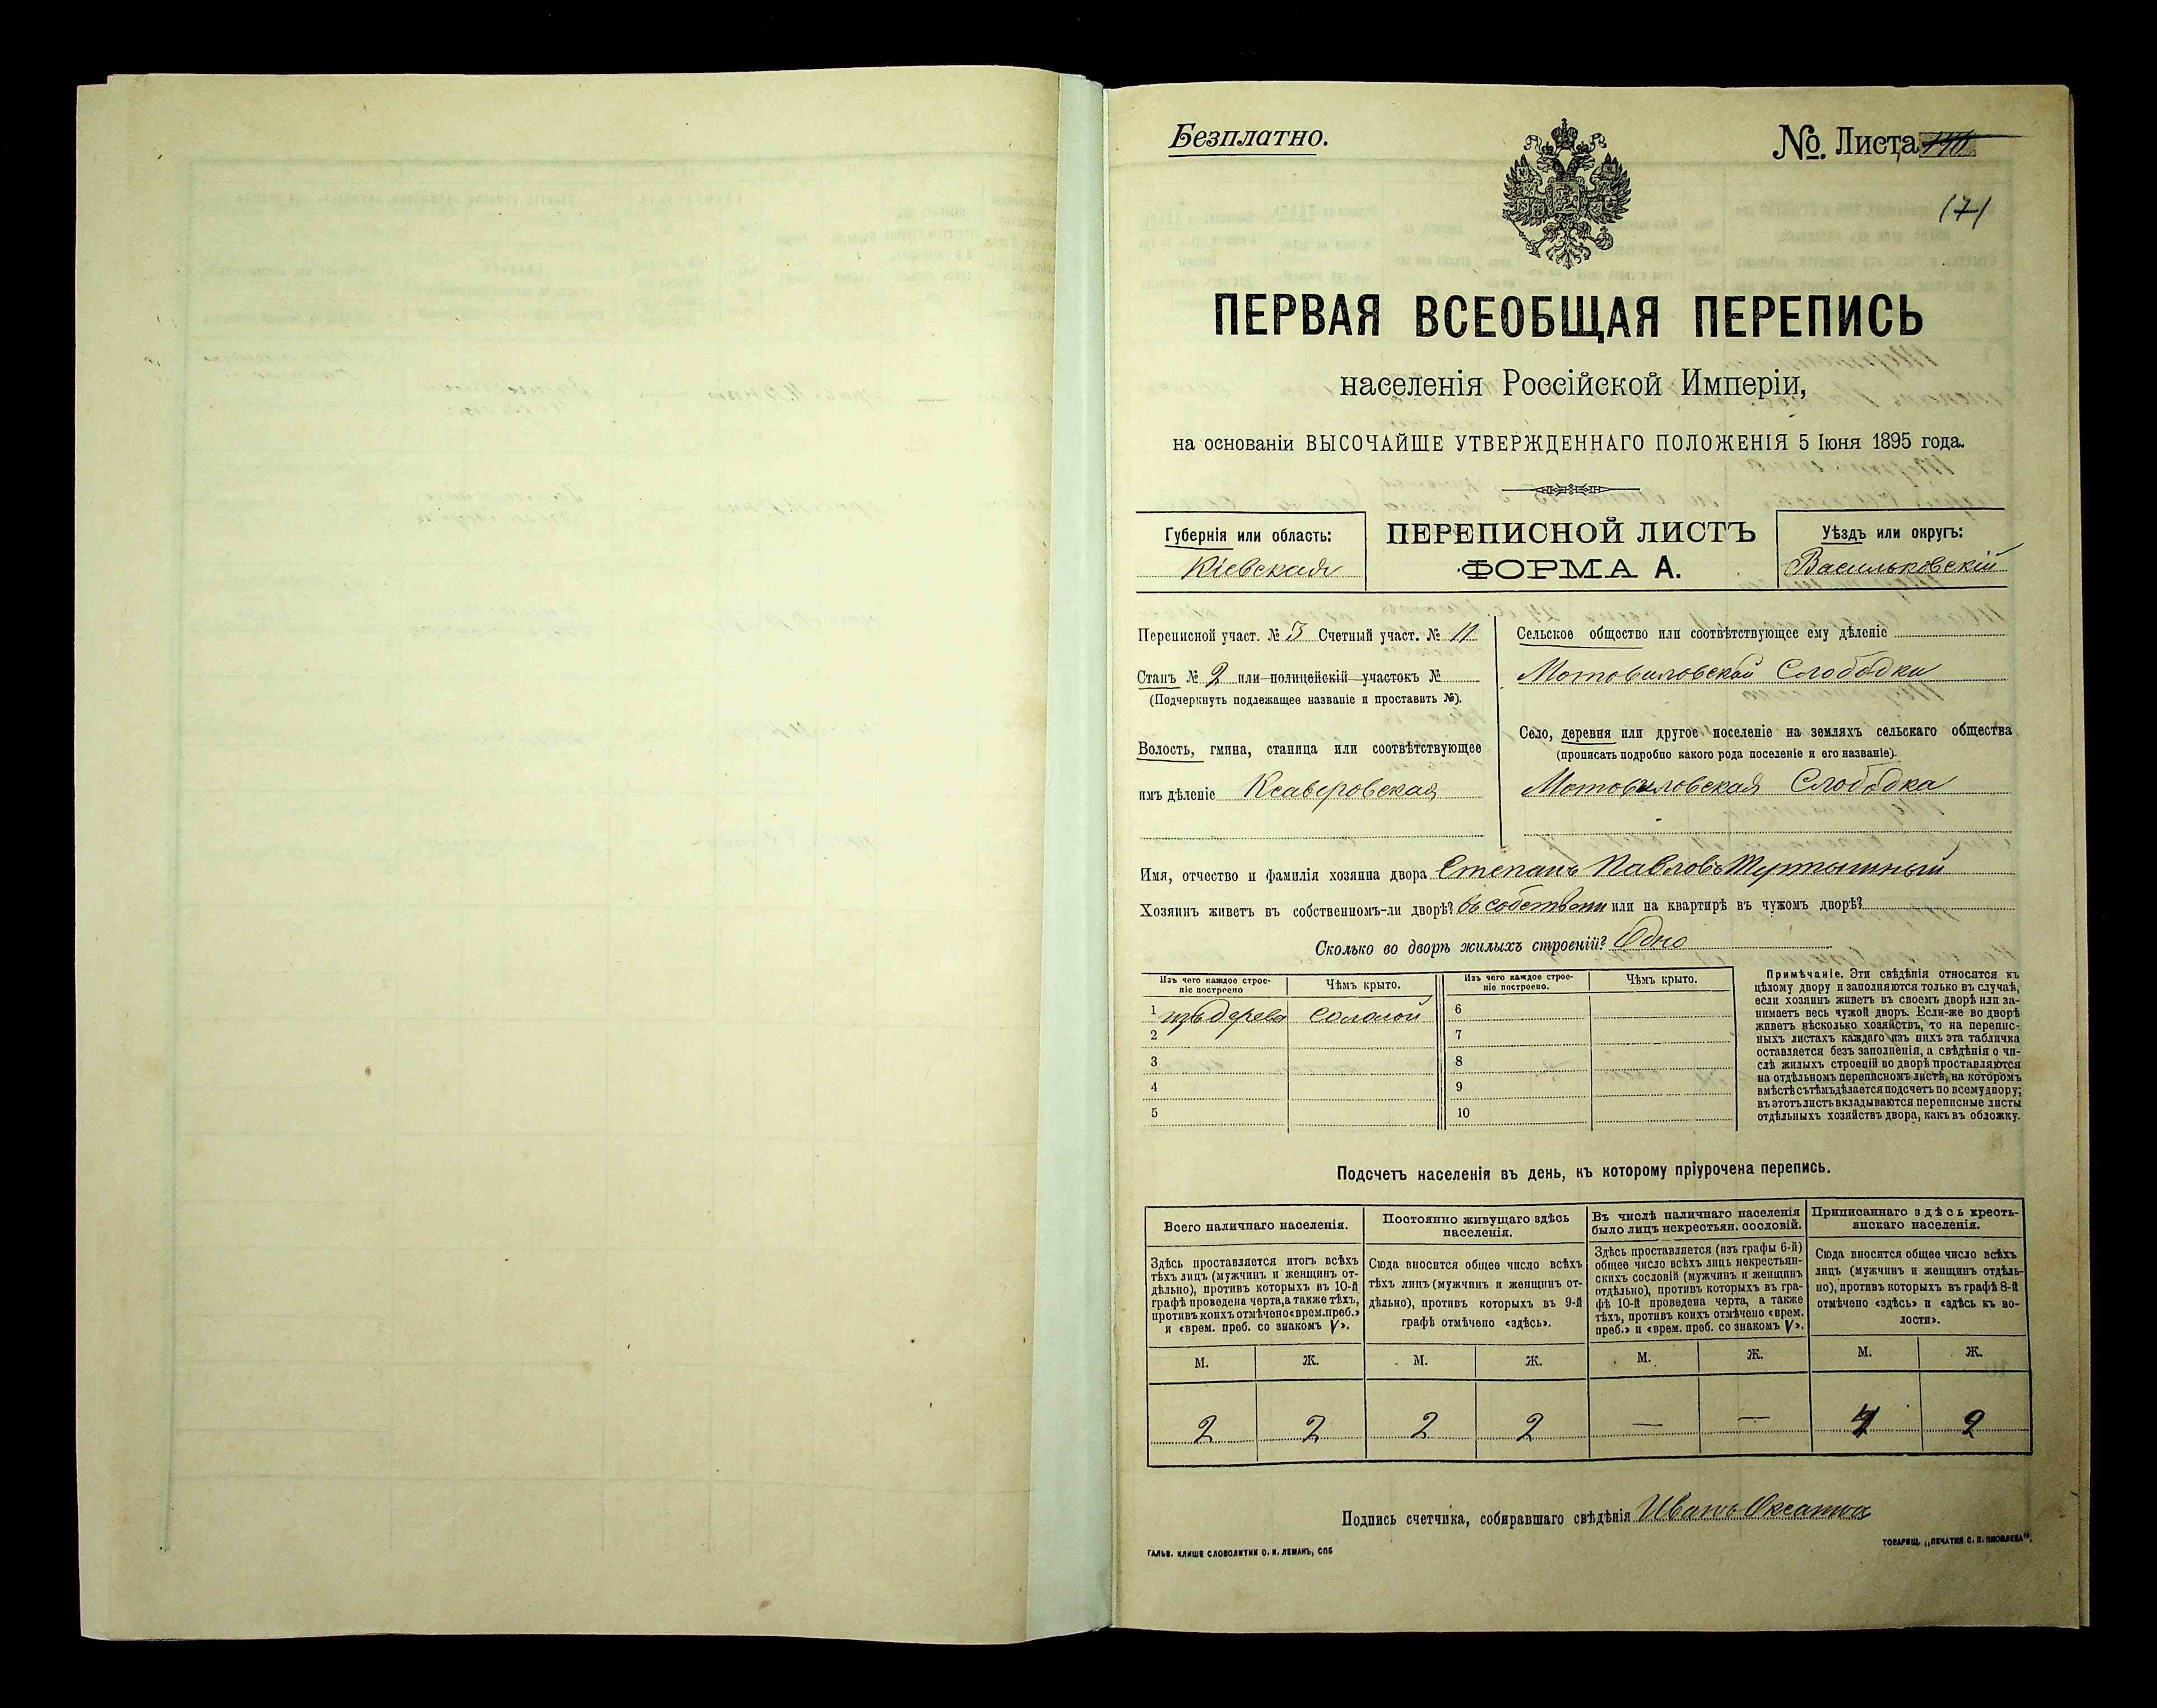 Безплатно.
№. Листа
171
ПЕРВАЯ ВСЕОБЩАЯ ПЕРЕПИСЬ
населенія Россійской Имперіи,
на основаніи ВЫСОЧАЙШЕ УТВЕРЖДЕННАГО ПОЛОЖЕНІЯ 5 Іюня 1895 года.
Губернія или область:
Кіевская
ПЕРЕПИСНОЙ ЛИСТЪ
ФОРМА А.
Уѣздъ или округъ:
Васильковскій
Переписной участ. № 3 Счетный участ. № 11
Станъ № 2 или полицейскій участокъ №
(Подчеркнуть подлежащее названіе и проставить №).
Волость, гмина, станица или соотвѣтствующее
имъ дѣленіе Ксаверовская
Сельское общество или соотвѣтствующее ему дѣленіе
Мотовиловской Слободки
Село, деревня или другое поселеніе на земляхъ сельскаго общества
(прописать подробно какого рода поселеніе и его названіе).
Мотовиловская Слободка
Имя, отчество и фамилія хозяина двора Степанъ Павловъ
Хозяинъ живетъ въ собственномъ-ли дворѣ? въ собствени или на квартирѣ въ чужомъ дворѣ?
Сколько во дворѣ жилыхъ строеній? Одно
Изъ чего каждое строе-
ніе построено
Чѣмъ крыто.
Изъ чего каждое строе-
ніе построено.
Чѣмъ крыто.
1 изъ дерева соломой 6
2 7
3 8
4 9
5 10
Примѣчаніе. Эти свѣдѣнія относятся къ
цѣлому двору и заполняются только въ случаѣ,
если хозяинъ живетъ въ своемъ дворѣ или за-
нимаетъ весь чужой дворъ. Если-же во дворѣ
живетъ нѣсколько хозяйствъ, то на перепис-
ныхъ листахъ каждаго изъ нихъ эта табличка
оставляется безъ заполненія, а свѣдѣнія о чи-
слѣ жилыхъ строеній во дворѣ проставляются
на отдѣльномъ переписномъ листѣ, на которомъ
вмѣстѣ съ тѣмъ дѣлается подсчетъ по всему двору;
въ этотъ листъ вкладываются переписные листы
отдѣльныхъ хозяйствъ двора, какъ въ обложку.
Подсчетъ населенія въ день, къ которому пріурочена перепись.
Всего наличнаго населенія.
Здѣсь проставляется итогъ всѣхъ
тѣхъ лицъ (мужчинъ и женщинъ от-
дѣльно), противъ которыхъ въ 10-й
графѣ проведена черта, а также тѣхъ,
противъ коихъ отмѣчено «врем. преб.»
и «врем. преб. со знакомъ V».
Постоянно живущаго здѣсь
населенія.
Сюда вносится общее число всѣхъ
тѣхъ лицъ (мужчинъ и женщинъ от-
дѣльно), противъ которыхъ въ 9-й
графѣ отмѣчено «здѣсь».
Въ числѣ наличнаго населенія
было лицъ некрестьян. сословій.
Здѣсь проставляется (изъ графы 6-й)
общее число всѣхъ лицъ некрестьян-
скихъ сословій (мужчинъ и женщинъ
отдѣльно), противъ которыхъ въ гра-
фѣ 10-й проведена черта, а также
тѣхъ, противъ коихъ отмѣчено «врем.
преб.» и «врем. преб. со знакомъ V».
Приписаннаго здѣсь кресть-
янскаго населенія.
Сюда вносится общее число всѣхъ
лицъ (мужчинъ и женщинъ отдѣль-
но), противъ которыхъ въ графѣ 8-й
отмѣчено «здѣсь» и «здѣсь къ во-
лости».
М. Ж. М. Ж. М. Ж. М. Ж.
2 2 2 2 — — 2
Подпись счетчика, собиравшаго свѣдѣнія Иванъ
ГАЛЬВ. КЛИШЕ СЛОВОЛИТНИ О. И. ЛЕМАНЪ, СПБ
ТОВАРИЩ. „ПЕЧАТНЯ С. П. ЯКОВЛЕВА“.